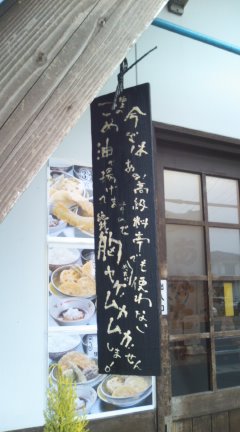 今ではあの高級料亭でも使わない
こめ油で揚げて
胸ヤケムカムカしません